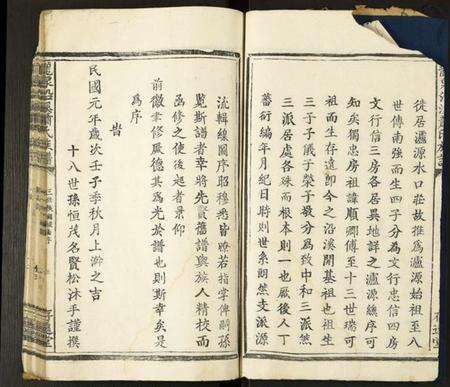 徙居瀘源水口莊故推爲瀘源始祖至八
世傳南強而生四子分為文行忠信四房
文行信三房各居異地詳之瀘源總序可
知矣獨忠房祖諱順卿傳至十三世瑞可
祖而生存遠即今之沿溪開基祖也祖生
三子子儀子榮子敬分爲致中和三派然
三派居處各殊而根本則一也厥後人丁
蕃衍編年月紀日時則世系朗然支派源
流輯線圖序昭穆悉皆瞭若指掌俾嗣孫
覽斯譜者幸將先賢舊譜與族人精校而
亟修之使後起者景仰
前徽聿修厥德其為光於譜也則斯幸矣是
為序
旹
民國元年歲次壬子季秋月上澣之吉
十八世孫恒茂名賢松沐手謹撰